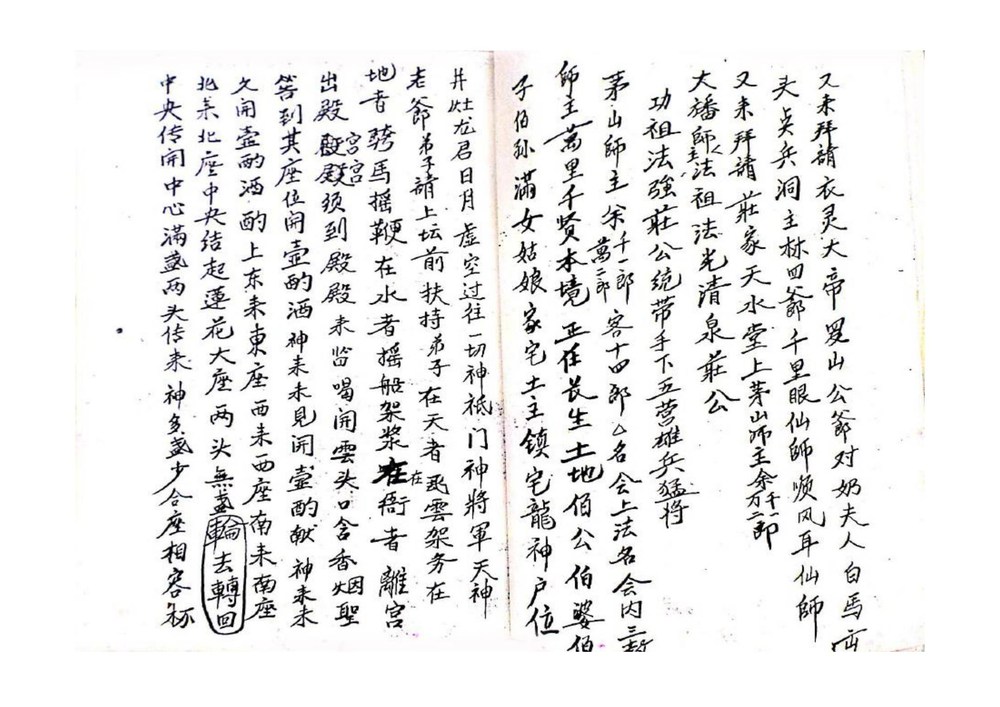 又来拜請衣灵大帝罗山公爺对奶夫人白馬
头兵洞主林四爺千里眼仙師顺风耳仙師
又来拜請莊家天水堂上茅山师主余千一郎万二郎
大旛師主法祖法光清泉莊公
功祖法強莊公统带手下五营雄兵猛将
茅山師主余千一郎萬二郎客十四郎厶名会上法名会内三
師主萬里千贤本境正任长生土地伯公伯婆伯
子伯孙滿女姑娘家宅土主鎮宅龍神户位
井灶龙君日月虚空过往一切神祇门神將軍天神
老爺弟子請上坛前扶持弟子在天者飛雲架务在
地者骑馬摇鞭在水者摇船架浆在衙者離宮
出殿宮宮殿殿须到殿殿来皆喝開雲头口含香烟聖
答到其座位開壶酌酒神来未見開壶酌献神来未
久開壶酌酒酌上东来東座西来西座南来南座
北来北座中央结起蓮花大座两头無盏輪去轉回
中央传開中心滿盏两头传来神多盏少合座相容杯